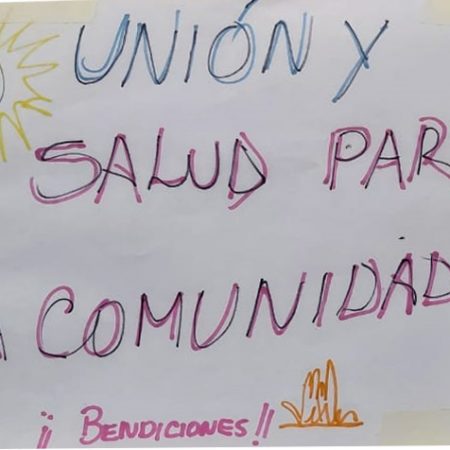 UNIÓN Y
SALUD PAR
COMUNIDAD
¡¡ BENDICIONES!!